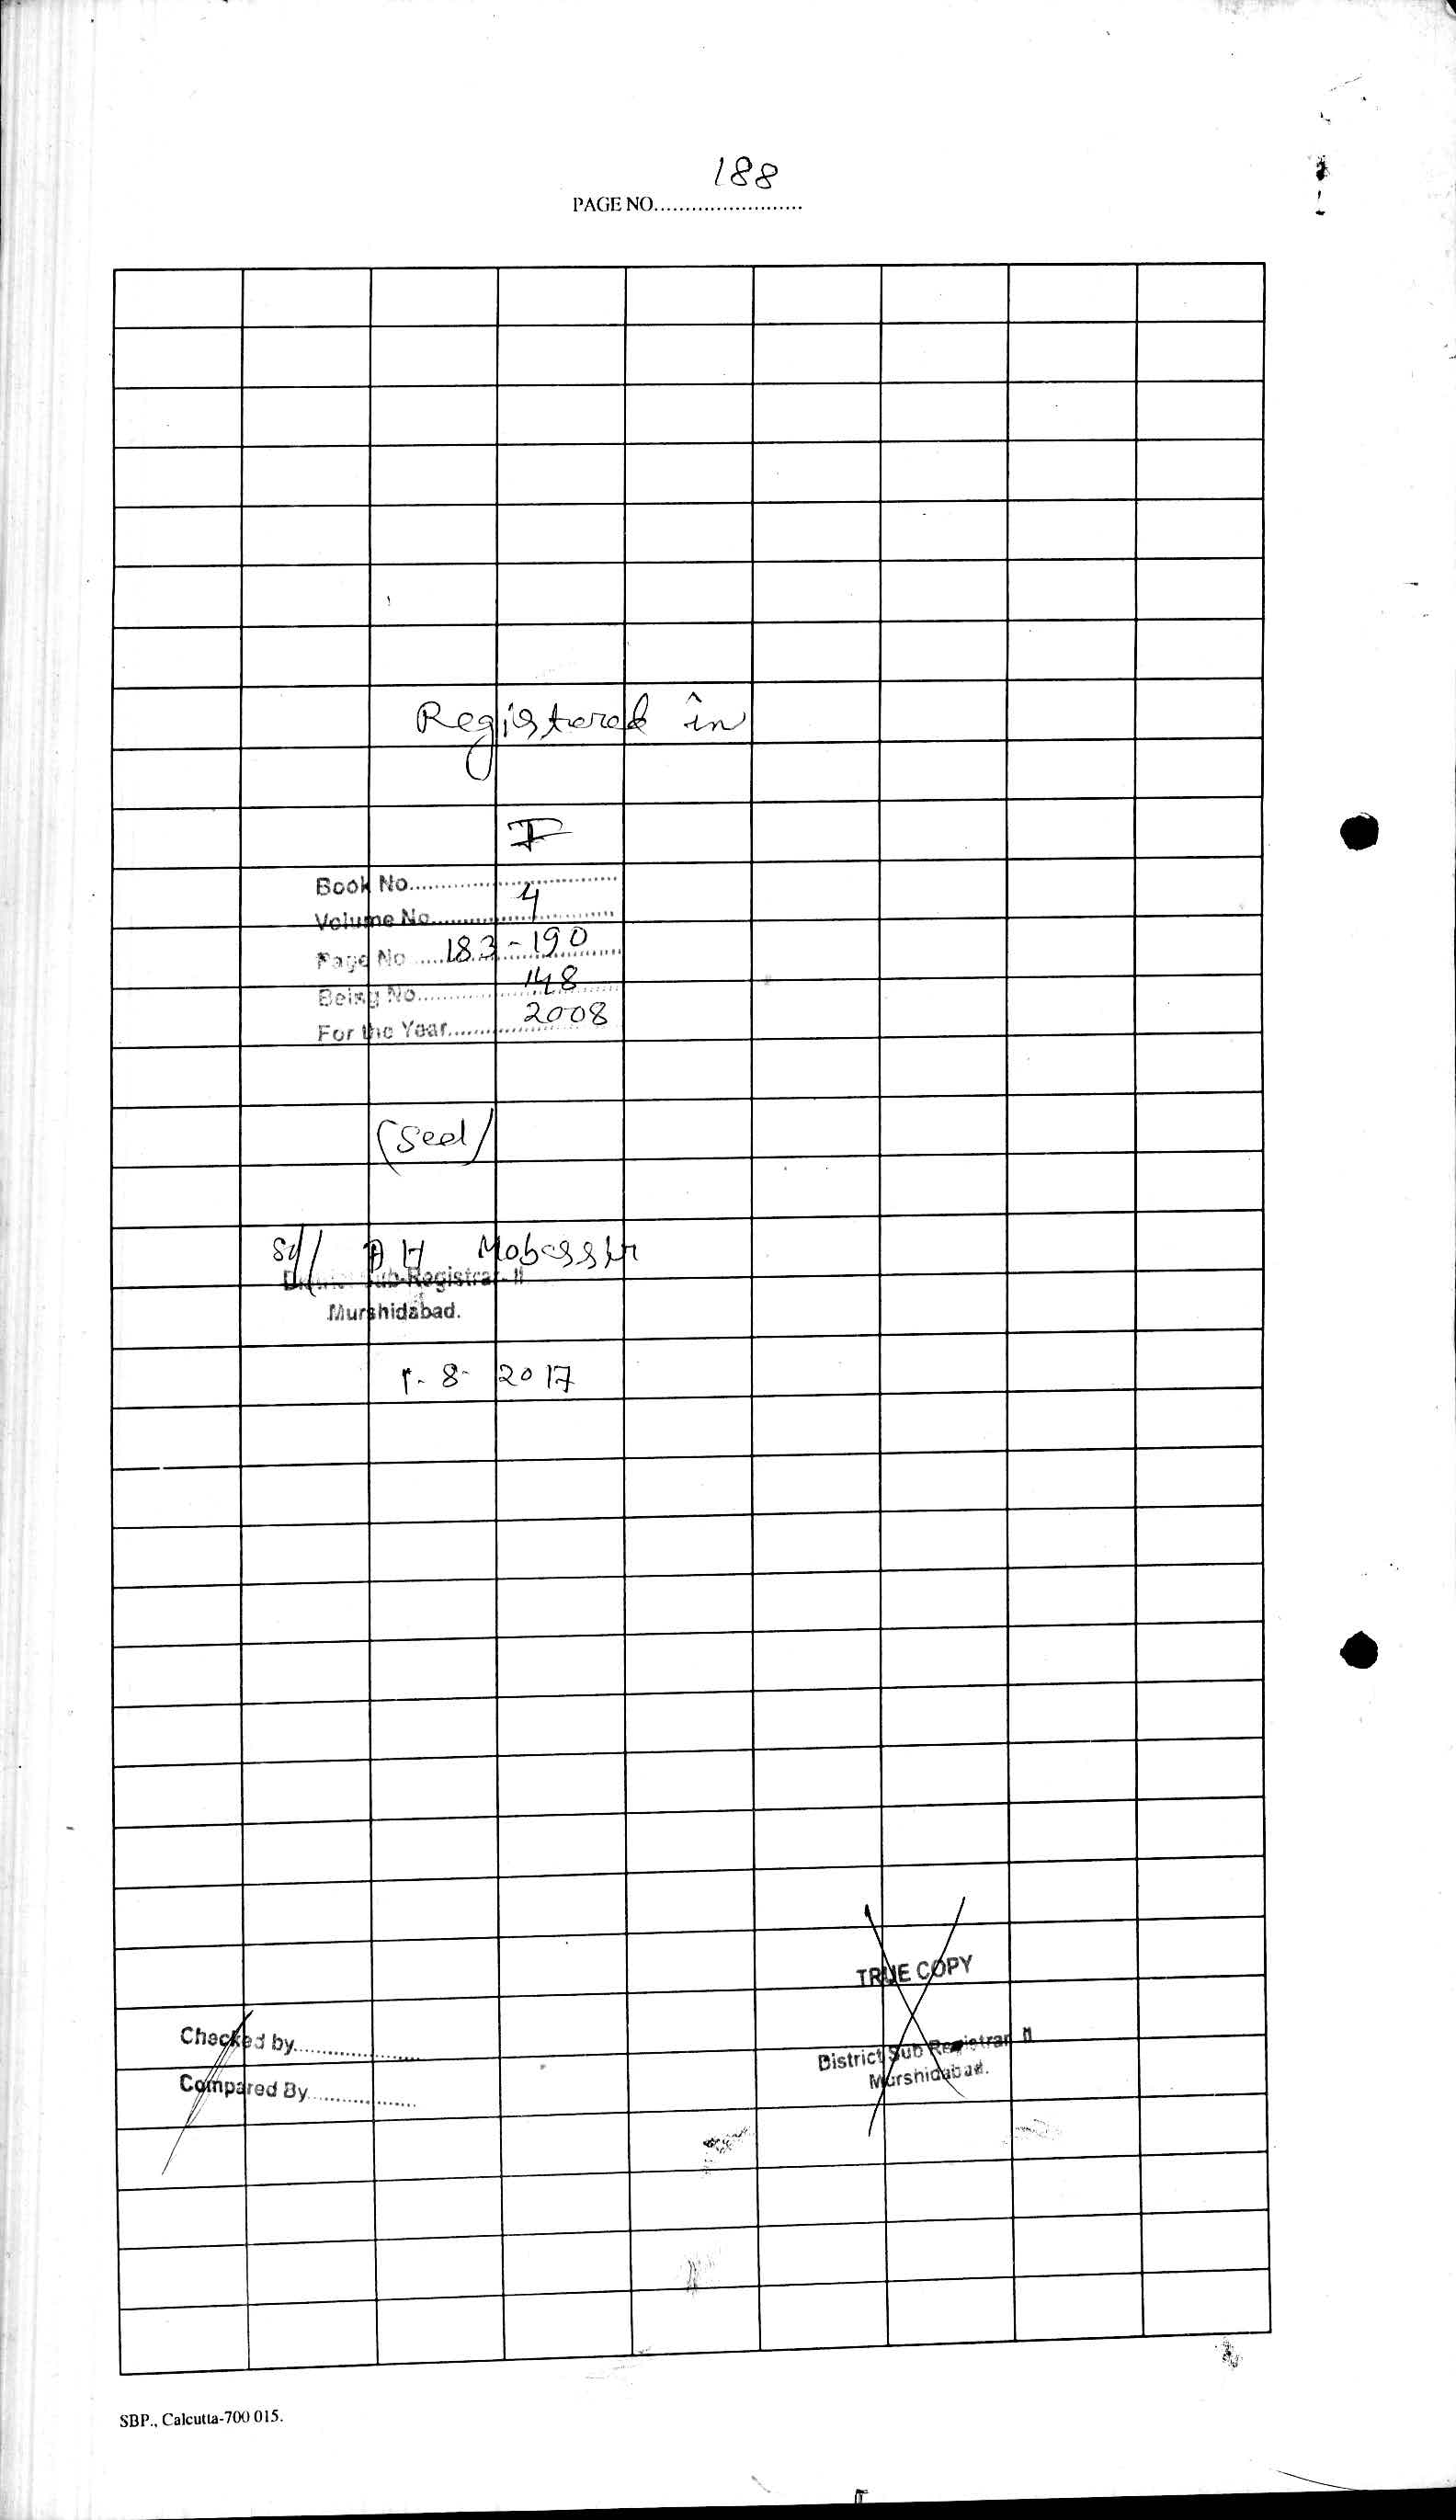 188
PAGE NO........................
Registered in
I
Book No................................
4
Volume No............................
Page No ..... 183 - 190
Being No..... 148
For the Year..... 2008
(Seal)
Sd/ A H Mobassir
District Sub-Registrar-II
Murshidabad.
1-8-2017
TRUE COPY
District Sub Registrar II
Murshidabad.
Checked by....................
Compared By..................
SBP., Calcutta-700 015.